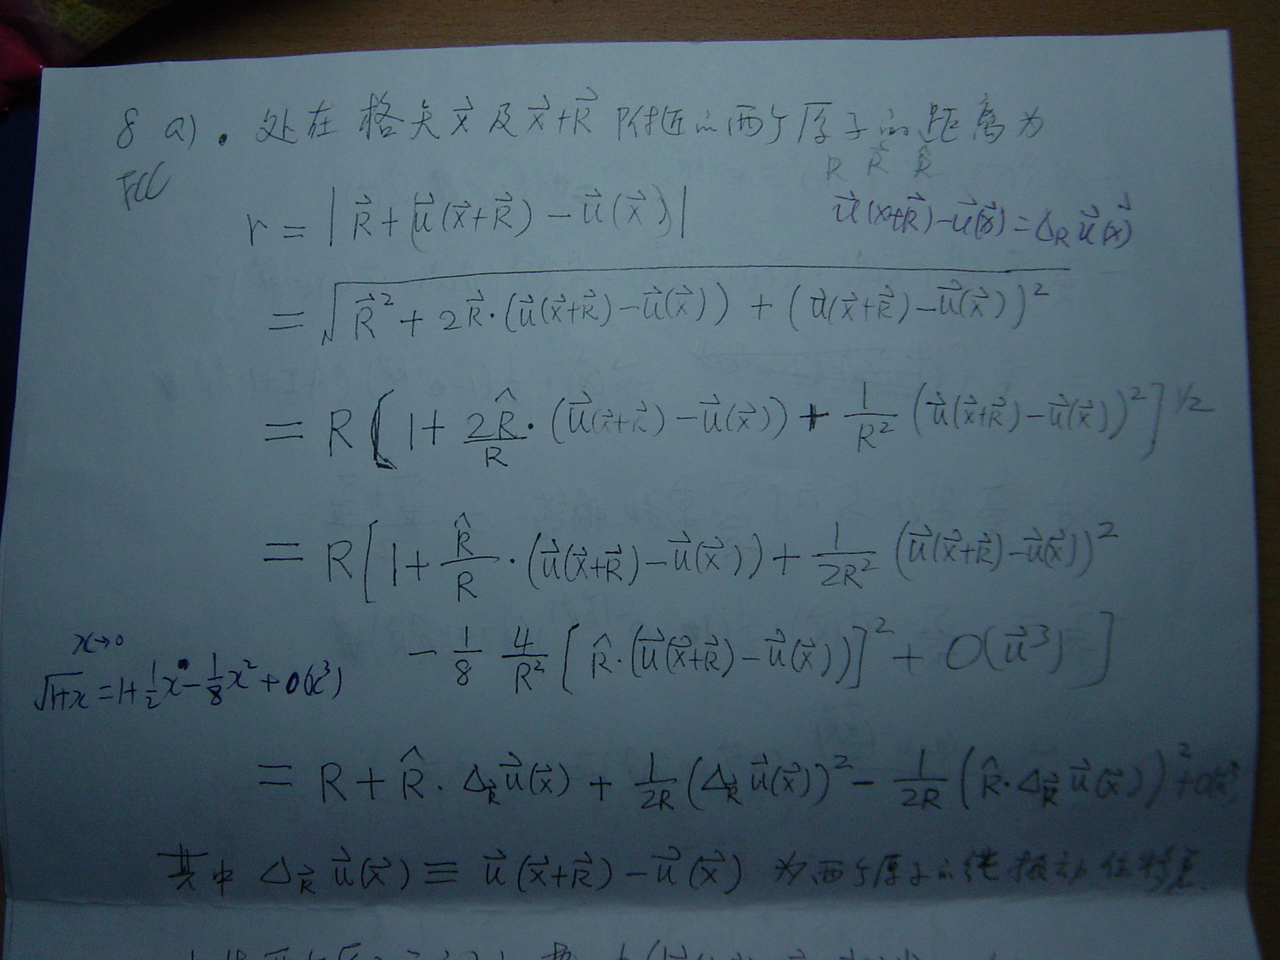 8 a). 处在格点 $\vec{x}$ 及 $\vec{x}+\vec{R}$ 附近的两个原子的距离为
FCC
R $\vec{R}$ $\hat{R}$
$r = |\vec{R}+(\vec{u}(\vec{x}+\vec{R})-\vec{u}(\vec{x}))|$
$\vec{u}(x+\vec{R})-\vec{u}(\vec{x})=\Delta_R\vec{u}(\vec{x})$
$= \sqrt{\vec{R}^2+2\vec{R}\cdot(\vec{u}(\vec{x}+\vec{R})-\vec{u}(\vec{x}))+(\vec{u}(\vec{x}+\vec{R})-\vec{u}(\vec{x}))^2}$
$= R\left[1+\frac{2\hat{R}}{R}\cdot(\vec{u}(\vec{x}+\vec{R})-\vec{u}(\vec{x}))+\frac{1}{R^2}(\vec{u}(\vec{x}+\vec{R})-\vec{u}(\vec{x}))^2\right]^{1/2}$
$= R\left[1+\frac{\hat{R}}{R}\cdot(\vec{u}(\vec{x}+\vec{R})-\vec{u}(\vec{x}))+\frac{1}{2R^2}(\vec{u}(\vec{x}+\vec{R})-\vec{u}(\vec{x}))^2\right.$
$\left.-\frac{1}{8}\frac{4}{R^2}\left[\hat{R}\cdot(\vec{u}(\vec{x}+\vec{R})-\vec{u}(\vec{x}))\right]^2+O(\vec{u}^3)\right]$
$x\to 0$
$\sqrt{1+x}=1+\frac{1}{2}x-\frac{1}{8}x^2+O(x^3)$
$= R+\hat{R}\cdot\Delta_{\vec{R}}\vec{u}(\vec{x})+\frac{1}{2R}(\Delta_{\vec{R}}\vec{u}(\vec{x}))^2-\frac{1}{2R}(\hat{R}\cdot\Delta_{\vec{R}}\vec{u}(\vec{x}))^2+O(\vec{u}^3)$
其中 $\Delta_{\vec{R}}\vec{u}(\vec{x})\equiv\vec{u}(\vec{x}+\vec{R})-\vec{u}(\vec{x})$ 为两个原子的 振动位移差